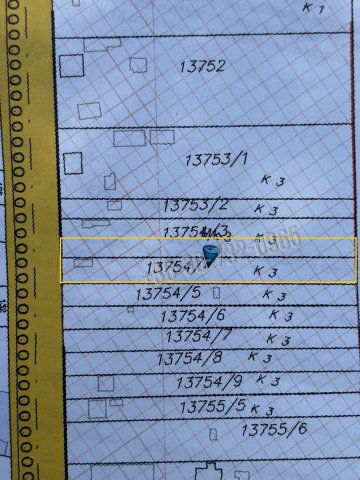 K 1
13752
13753/1
K 3
13753/2
K 3
13754/3
K 3
13754/
K 3
13754/5
K 3
13754/6
K 3
13754/7
K 3
13754/8
K 3
13754/9
K 3
13755/5 K 3
13755/6